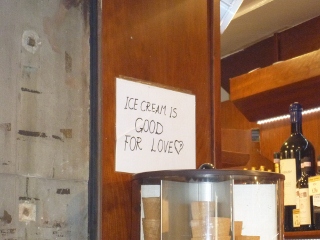 ICE CREAM IS
GOOD
FOR LOVE♡